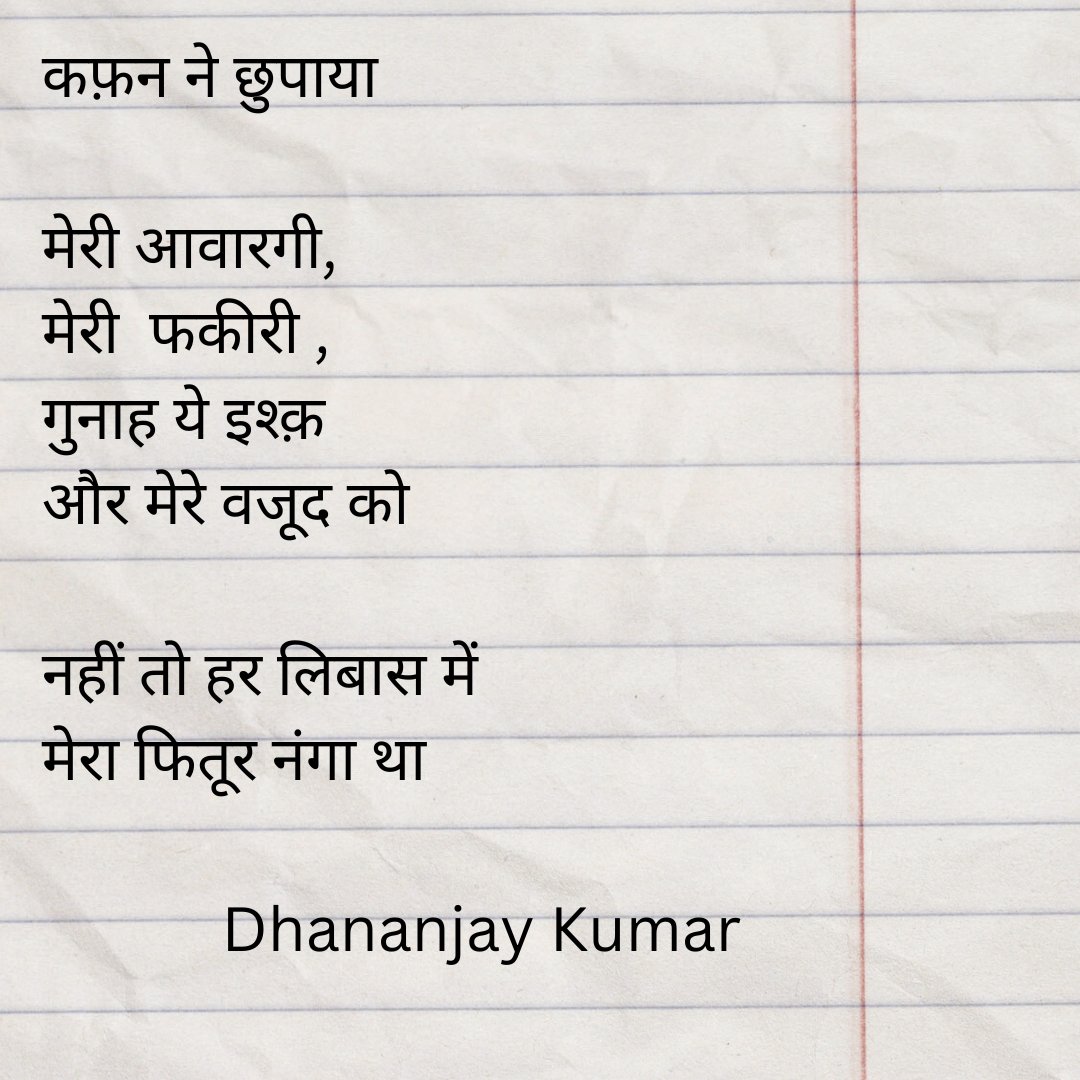 कफ़न ने छुपाया
मेरी आवारगी,
मेरी  फकीरी ,
गुनाह ये इश्क़
और मेरे वजूद को
नहीं तो हर लिबास में
मेरा फितूर नंगा था
Dhananjay Kumar